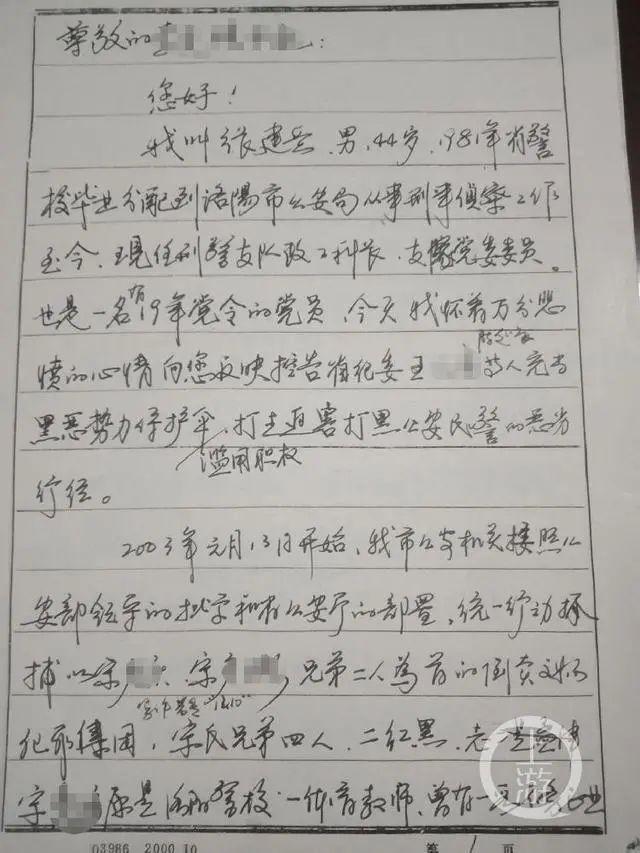 尊敬的
您好！
我叫张建兴，男，44岁，1981年省警
校毕业分配到洛陽市公安局从事刑事侦察工作
至今，现任刑警支队政工科长，支队党委委员。
也是一名有19年党令的党员，今天我怀着万分悲
愤的心情向您反映控告省纪委王 等人充当
黑恶势力保护伞，打击迫害打黑公安民警的恶劣
滥用职权
行径。
2003年元月13日开始，我市公安机关按照公
安部领导的批字和省公安厅的部署，统一行动抓
捕以宋 、宋 兄弟二人為首的倒卖文物
犯罪集团，宋氏兄弟四人，二红黑，老
宋 原是洛陽警校一体育教师，曾在一
上游
03986 2000.10 第 1